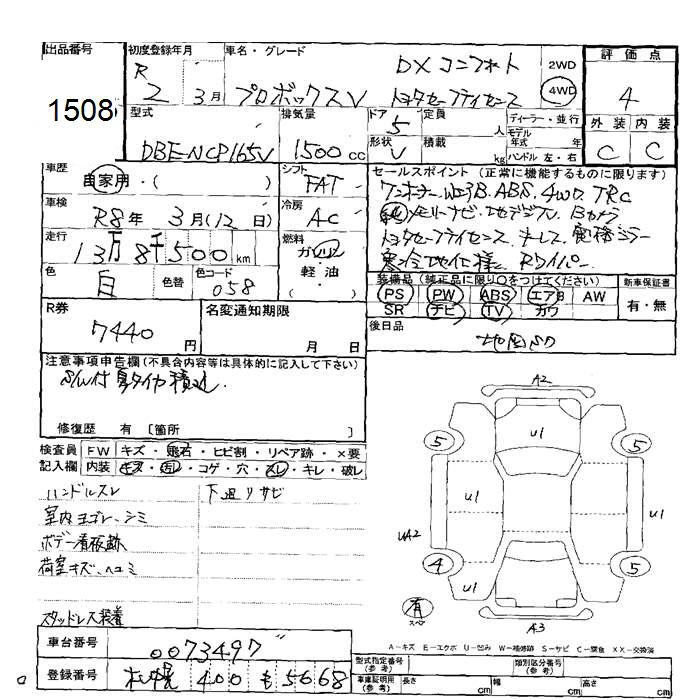 出品番号
1508
初度登録年月
R 2 3月
車名・グレード
DX コンフォート
プロボックスV トヨタセーフティセンス
2WD
4WD
評価点
4
外装 内装
C C
型式
DBE-NCP165V
排気量
1500 cc
ドア 5
形状 V
定員 人
積載 kg
ディーラー・並行
モデル年式 年
ハンドル 左・右
車歴
自家用・( )
シフト
FAT
車検
R8年 3月(12日)
冷房
AC
走行
13万8千500km
燃料
ガソリン
軽油
( )
色
白
色替
色コード
058
セールスポイント (正常に機能するものに限ります)
ワンオーナー WエアB. ABS. 4WD. TRC
純メモリーナビ. 地デジTV. Bカメラ
トヨタセーフティセンス. キーレス. 電格ミラー
寒冷地仕様. Rワイパー.
装備品 (純正品に限り○をつけてください)
PS PW ABS エアB AW
SR ナビ TV カワ
新車保証書
有・無
R券
7440円
名変通知期限
月 日
後日品
地図SD
注意事項申告欄 (不具合内容等は具体的に記入して下さい)
S/W付 夏タイヤ積込.
修復歴 有 [箇所 ]
検査員記入欄
FW キズ・飛石・ヒビ割・リペア跡・×要
内装 キズ・汚レ・コゲ・穴・スレ・キレ・破レ
ハンドルスレ
下廻りサビ
室内ヨゴレ、シミ
ボデー看板跡
荷室キズ、ヘコミ
スタッドレス装着
A2
U1
5 5
U1 U1
UA2
4 5
U1
有
スペア
A3
A-キズ E-エクボ U-凹み W-補修跡 S-サビ C-腐食 XX-交換済
車台番号
0073497
登録番号
札幌 400 も 5668
型式指定番号(参考)
類別区分番号(参考)
車庫証明用(参考)
長さ cm 幅 cm 高さ cm